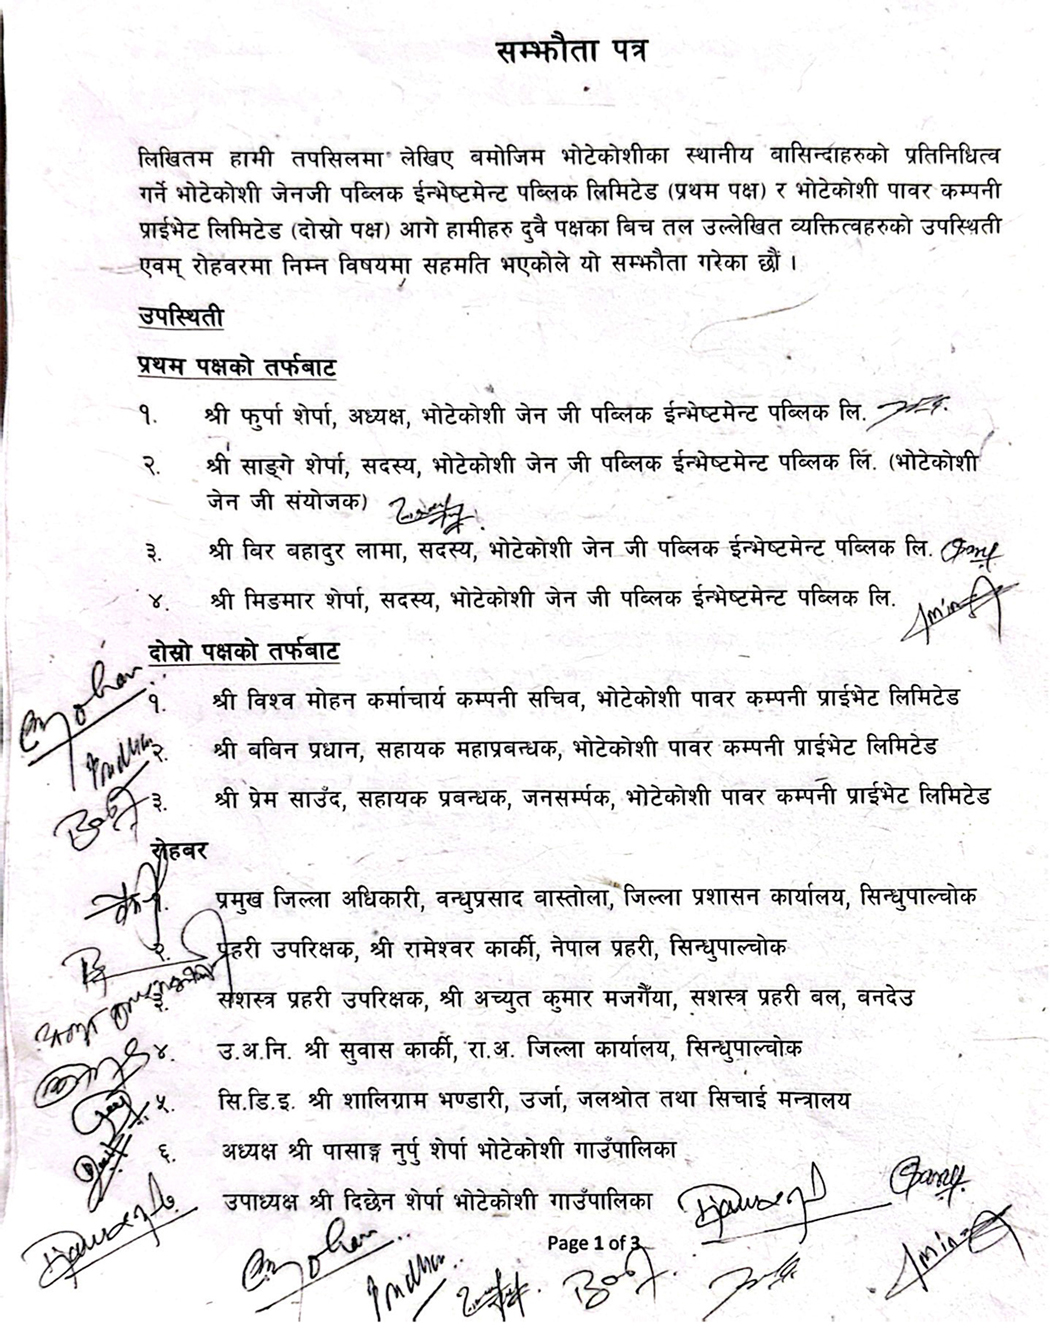 सम्झौता पत्र
लिखितम हामी तपसिलमा लेखिए बमोजिम भोटेकोशीका स्थानीय बासिन्दाहरुको प्रतिनिधित्व
गर्ने भोटेकोशी जेनजी पब्लिक ईन्भेष्टमेन्ट पब्लिक लिमिटेड (प्रथम पक्ष) र भोटेकोशी पावर कम्पनी
प्राईभेट लिमिटेड (दोस्रो पक्ष) आगे हामीहरु दुवै पक्षका बिच तल उल्लेखित व्यक्तित्वहरुको उपस्थिती
एवम् रोहवरमा निम्न विषयमा सहमति भएकोले यो सम्झौता गरेका छौं ।
उपस्थिती
प्रथम पक्षको तर्फबाट
१. श्री फुर्पा शेर्पा, अध्यक्ष, भोटेकोशी जेन जी पब्लिक ईन्भेष्टमेन्ट पब्लिक लि.
२. श्री साङ्गे शेर्पा, सदस्य, भोटेकोशी जेन जी पब्लिक ईन्भेष्टमेन्ट पब्लिक लि. (भोटेकोशी
जेन जी संयोजक)
३. श्री विर बहादुर लामा, सदस्य, भोटेकोशी जेन जी पब्लिक ईन्भेष्टमेन्ट पब्लिक लि.
४. श्री मिङमार शेर्पा, सदस्य, भोटेकोशी जेन जी पब्लिक ईन्भेष्टमेन्ट पब्लिक लि.
दोस्रो पक्षको तर्फबाट
१. श्री विश्व मोहन कर्माचार्य कम्पनी सचिव, भोटेकोशी पावर कम्पनी प्राईभेट लिमिटेड
२. श्री बविन प्रधान, सहायक महाप्रबन्धक, भोटेकोशी पावर कम्पनी प्राईभेट लिमिटेड
३. श्री प्रेम साउँद, सहायक प्रबन्धक, जनसर्म्पक, भोटेकोशी पावर कम्पनी प्राईभेट लिमिटेड
रोहबर
प्रमुख जिल्ला अधिकारी, वन्धुप्रसाद वास्तोला, जिल्ला प्रशासन कार्यालय, सिन्धुपाल्चोक
२. प्रहरी उपरिक्षक, श्री रामेश्वर कार्की, नेपाल प्रहरी, सिन्धुपाल्चोक
३. सशस्त्र प्रहरी उपरिक्षक, श्री अच्युत कुमार मजगैंया, सशस्त्र प्रहरी बल, वनदेउ
४. उ.अ.नि. श्री सुवास कार्की, रा.अ. जिल्ला कार्यालय, सिन्धुपाल्चोक
५. सि.डि.इ. श्री शालिग्राम भण्डारी, उर्जा, जलश्रोत तथा सिचाई मन्त्रालय
६. अध्यक्ष श्री पासाङ्ग नुर्पु शेर्पा भोटेकोशी गाउँपालिका
उपाध्यक्ष श्री दिछेन शेर्पा भोटेकोशी गाउँपालिका
Page 1 of 3